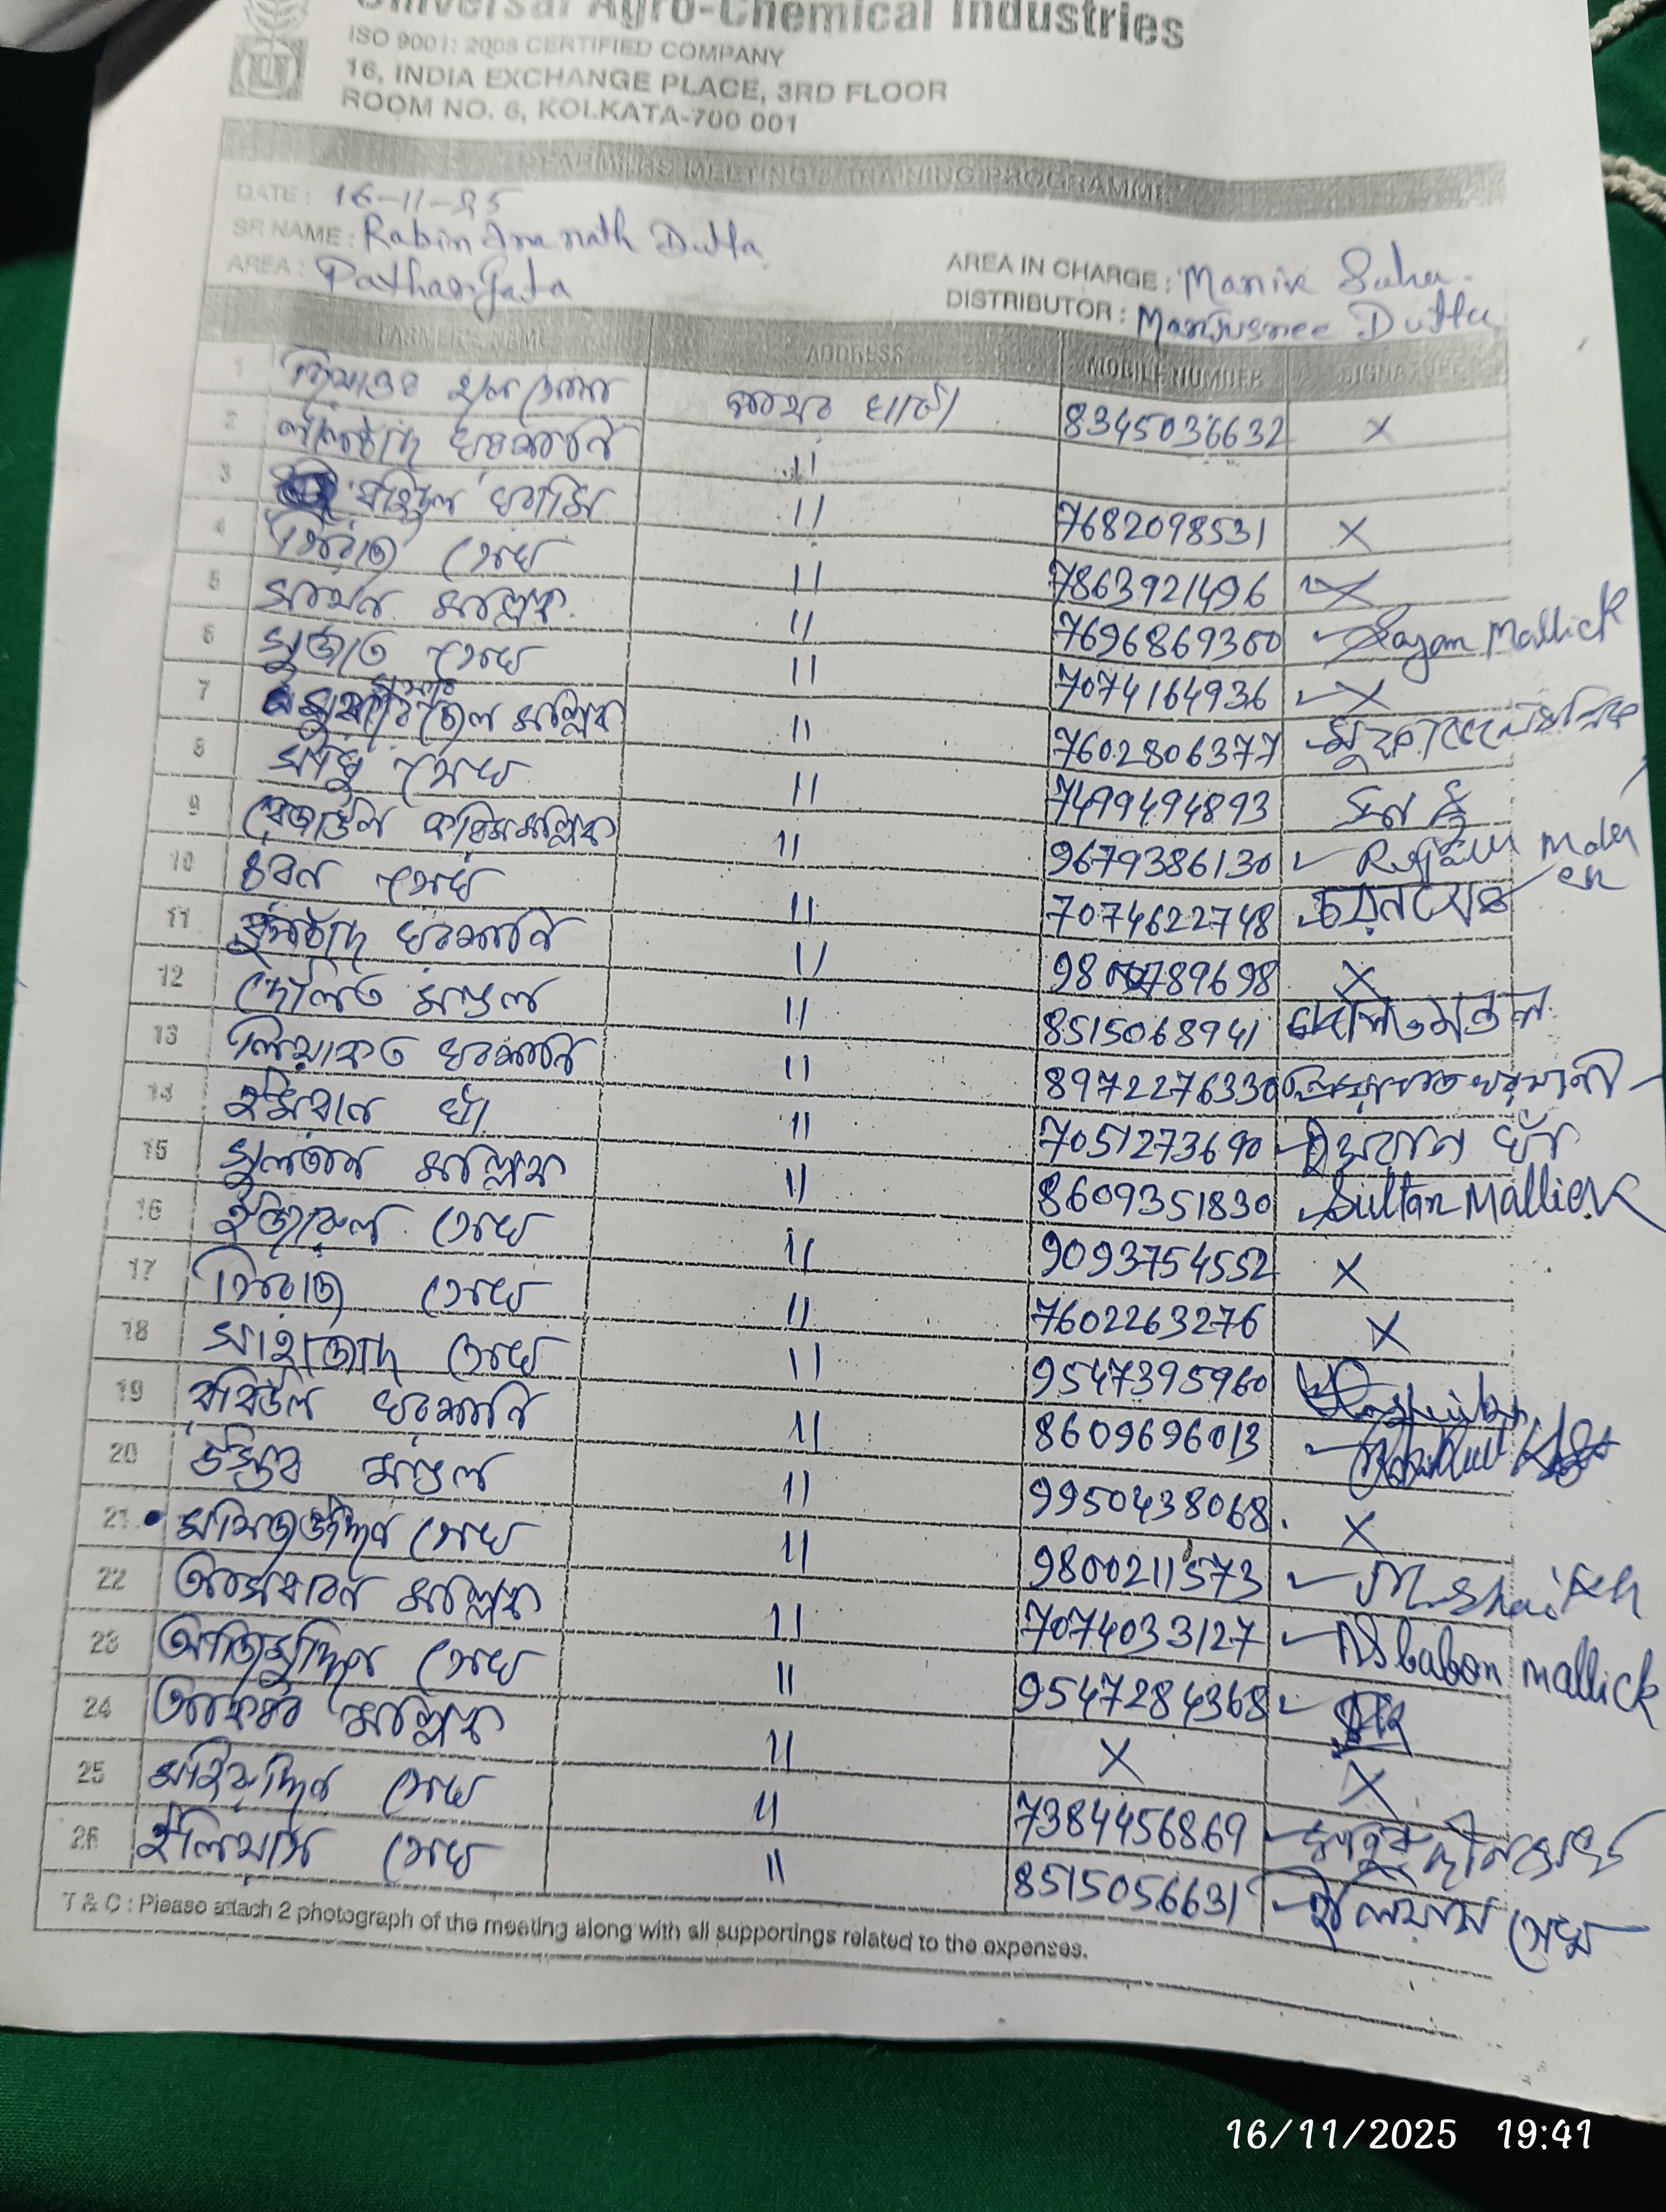 Universal Agro-Chemical Industries
ISO 9001: 2008 CERTIFIED COMPANY
16, INDIA EXCHANGE PLACE, 3RD FLOOR
ROOM NO. 6, KOLKATA-700 001
FARMERS MEETING & TRAINING PROGRAMME
DATE : 16-11-25
SR NAME : Rabindranath Dutta
AREA : Patharghata
AREA IN CHARGE : Manik Saha
DISTRIBUTOR : Manjusree Dutta
FARMER'S NAME ADDRESS MOBILE NUMBER SIGNATURE
1 পাথর ঘাটা 8345036632 X
2 লালচাঁদ ঘরামি 11
3 ঘরামি 11 7682098531 X
4 সিরাজ সেখ 11 7863921496 X
5 সায়ন মল্লিক 11 7696869360 Sayan Mallick
6 সুজাত সেখ 11 7074164936 X
7 মল্লিক 11 7602806377
8 সাধু সেখ 11 7499494893
9 রেজাউল করিম মল্লিক 11 9679386130
10 চয়ন সেখ 11 7074622748 চয়ন সেখ
11 11 X
12 দৌলত মণ্ডল 11 8515068941 দৌলত মন্ডল
13 লিয়াকত 11 8972276330 লিয়াকত
14 ইমরান খাঁ 11 7051273690 ইমরান খাঁ
15 সুলতান মল্লিক 11 8609351830 Sultan Mallick
16 সেখ 11 9093754552 X
17 সিরাজ সেখ 11 7602263276 X
18 সাহাজাদ সেখ 11 9547395960
19 রবিউল 11 8609696013
20 উস্তব মণ্ডল 11 9950438068 X
21 সেখ 11 9800211573 M. Shaikh
22 মল্লিক 11 7074033127 mallick
23 আজিমুদ্দিন সেখ 11 9547284368
24 আকবর মল্লিক 11 X X
25 সেখ 11 7384456869
26 ইলিয়াস সেখ 11 8515056631 ইলিয়াস সেখ
T & C : Please attach 2 photograph of the meeting along with all supportings related to the expenses.
16/11/2025 19:41